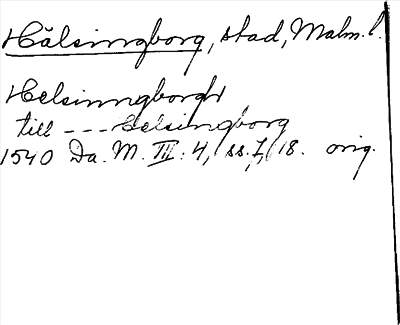 Hälsingborg, stad, Malm. l.
Helsinngborgh
till --- Helsingborg
1540 Da. M. III: 4, ss. 7, 18. orig.